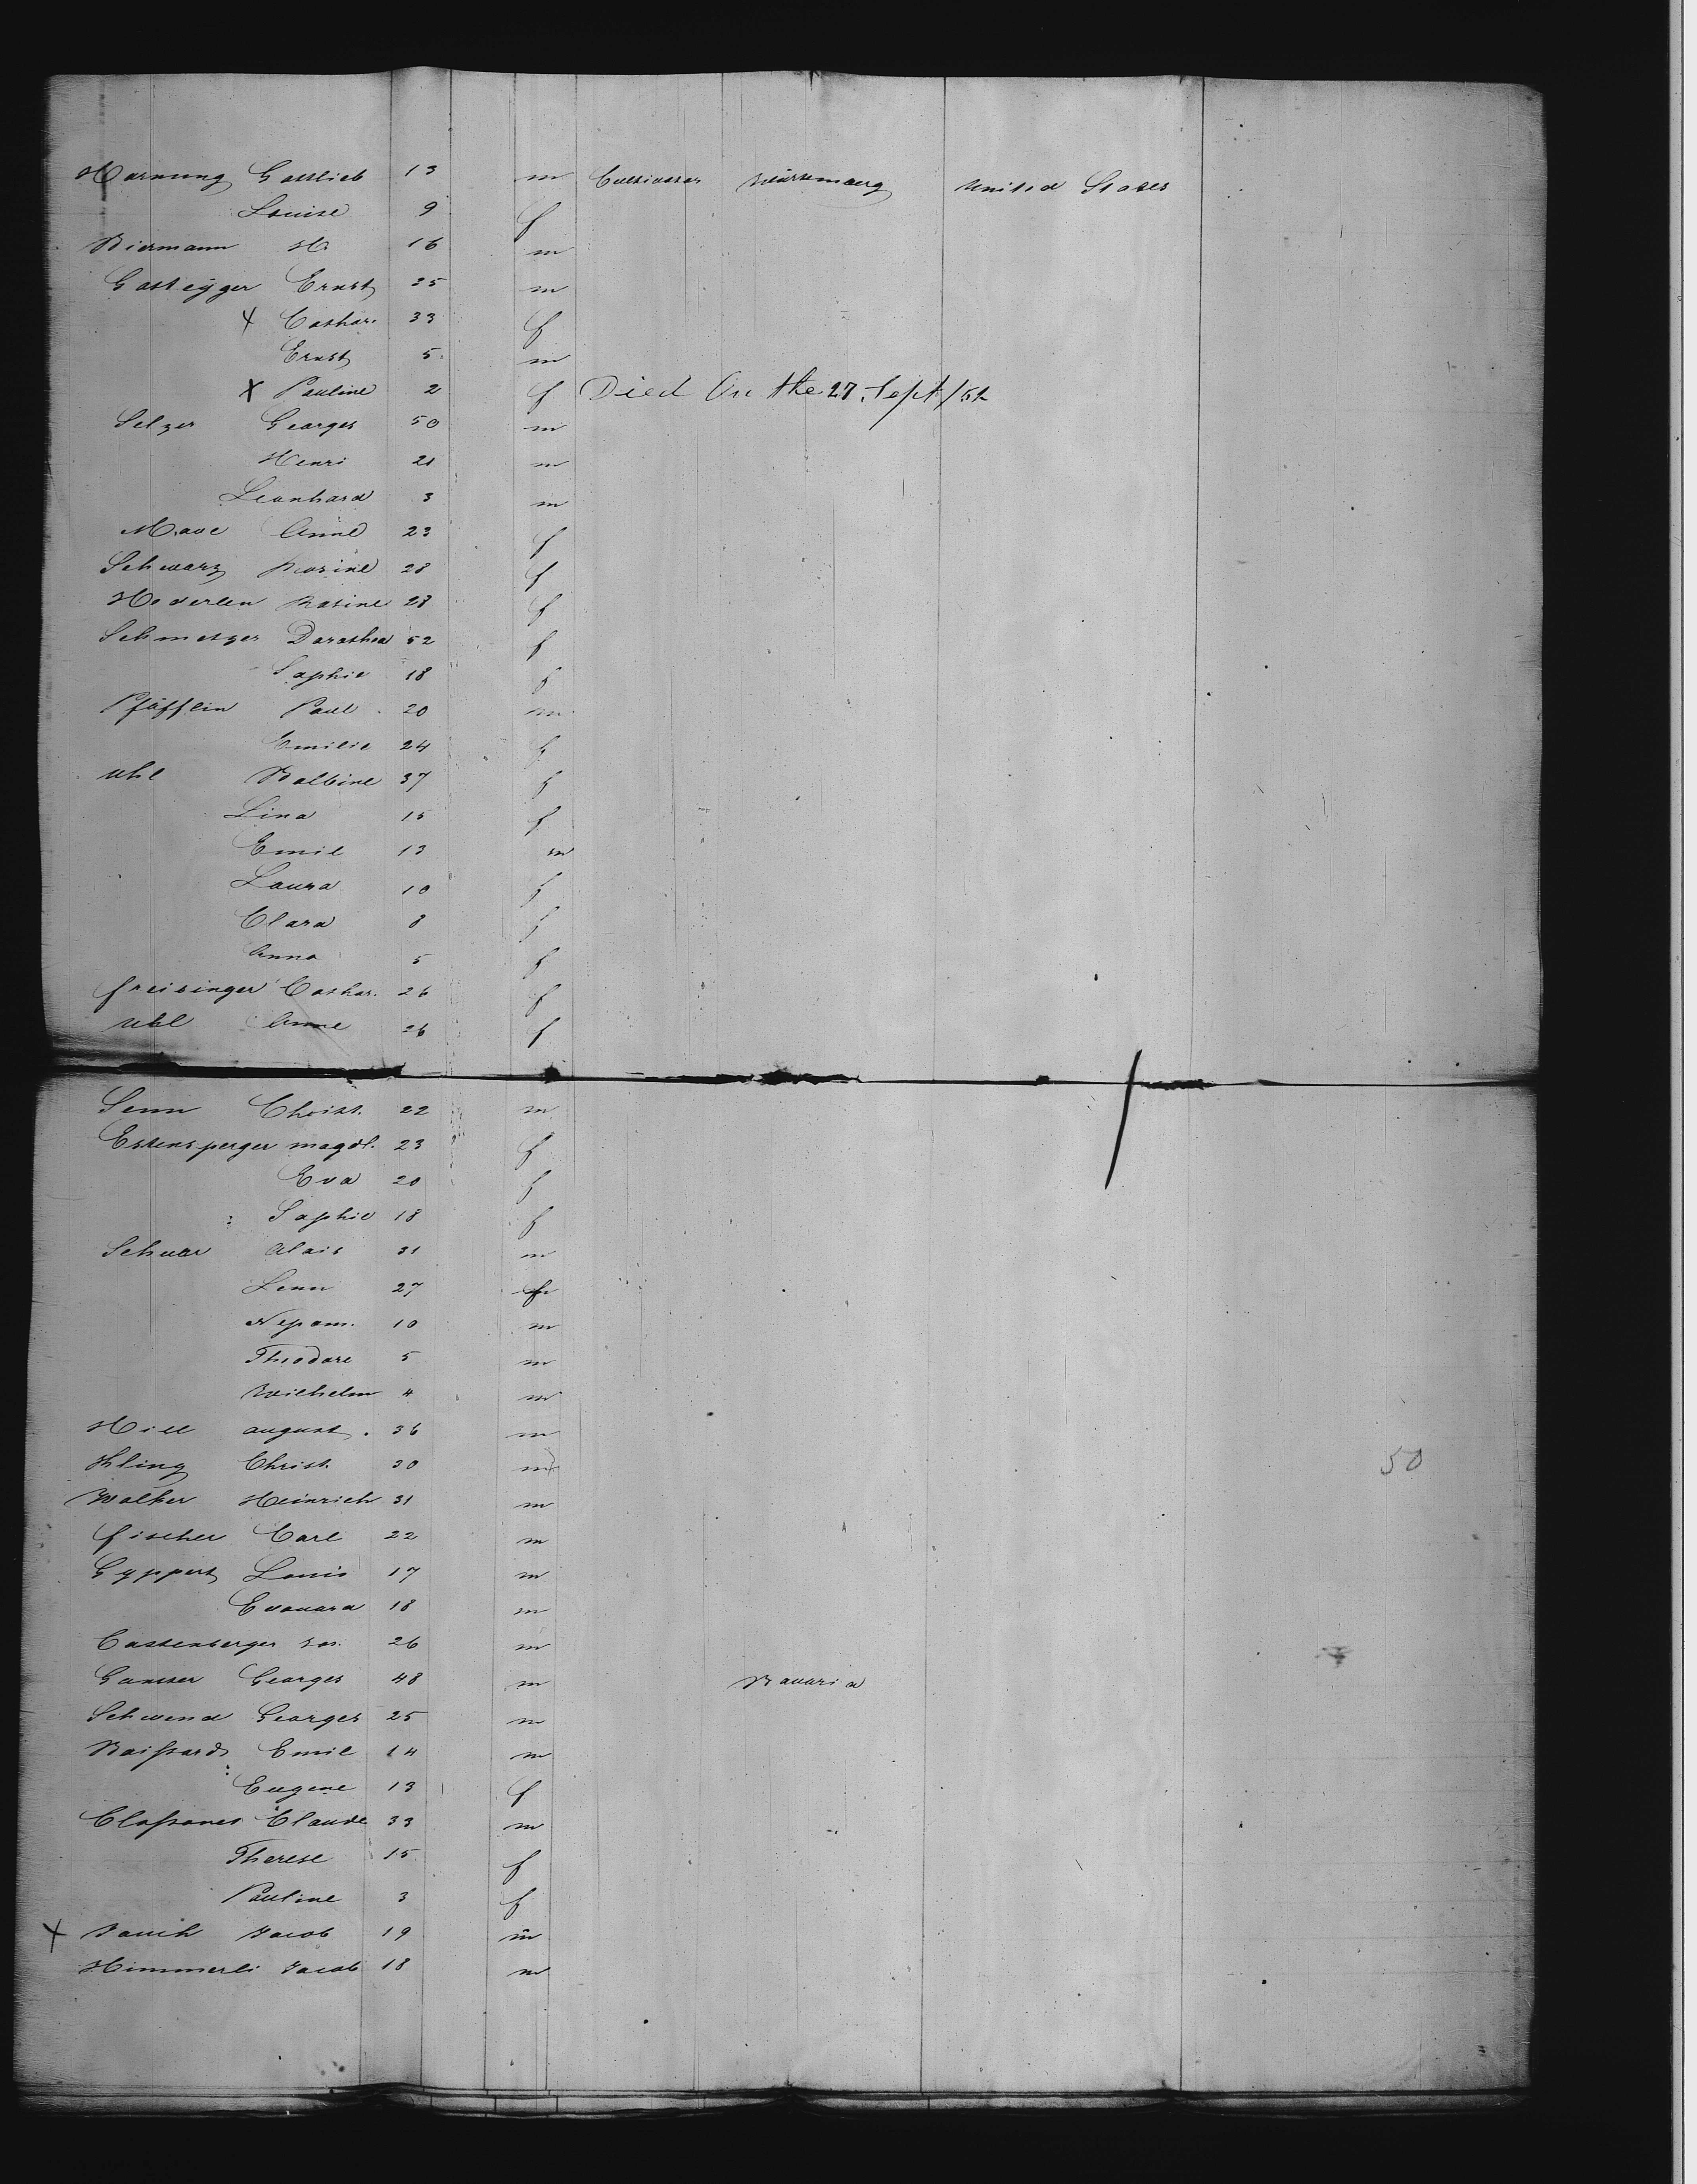 Hornung Gottlieb 13 m Cultivator Würtemberg United States
Louise 9 f
Biermann H. 16 m
Gosteyger Ernst 25 m
X Cathar. 33 f
Ernst 5 m
X Pauline 2 f Died On the 27. Sept/52
Selzer Georges 50 m
Henri 21 m
Leonhard 3 m
Anne 23 f
Schwarz Rosine 28 f
Hoderlen Rosine 28 f
Schmetzer Dorothea 52 f
Sophie 18 f
Pfäfflin Paul 20 m
Emilie 24 f
Uhl Balbine 37 f
Lina 15 f
Emil 13 m
Laura 10 f
Clara 8 f
Anna 5 f
Freisinger Cathar. 26 f
Uhl Anne 26 f
Senn Christ. 22 m
Ettensperger Magdl. 23 f
Eva 20 f
Sophie 18 f
Alois 31 m
27
Nepom. 10 m
Théodore 5 m
Wilhelm 4 m
Hill August 36 m
Kling Christ. 30 m
Walker Heinrich 31 m
Fischer Carl 22 m
Gyppert Louis 17 m
Edouard 18 m
Castenberger Jos. 26 m
Ganser Georges 48 m Bavaria
Schwend Georges 25 m
Emil 14 m
Eugene 13 f
Claude 33 m
Therese 15 f
Pauline 3 f
X Jauch Jacob 19 m
Himmerli Jacob 18 m
50